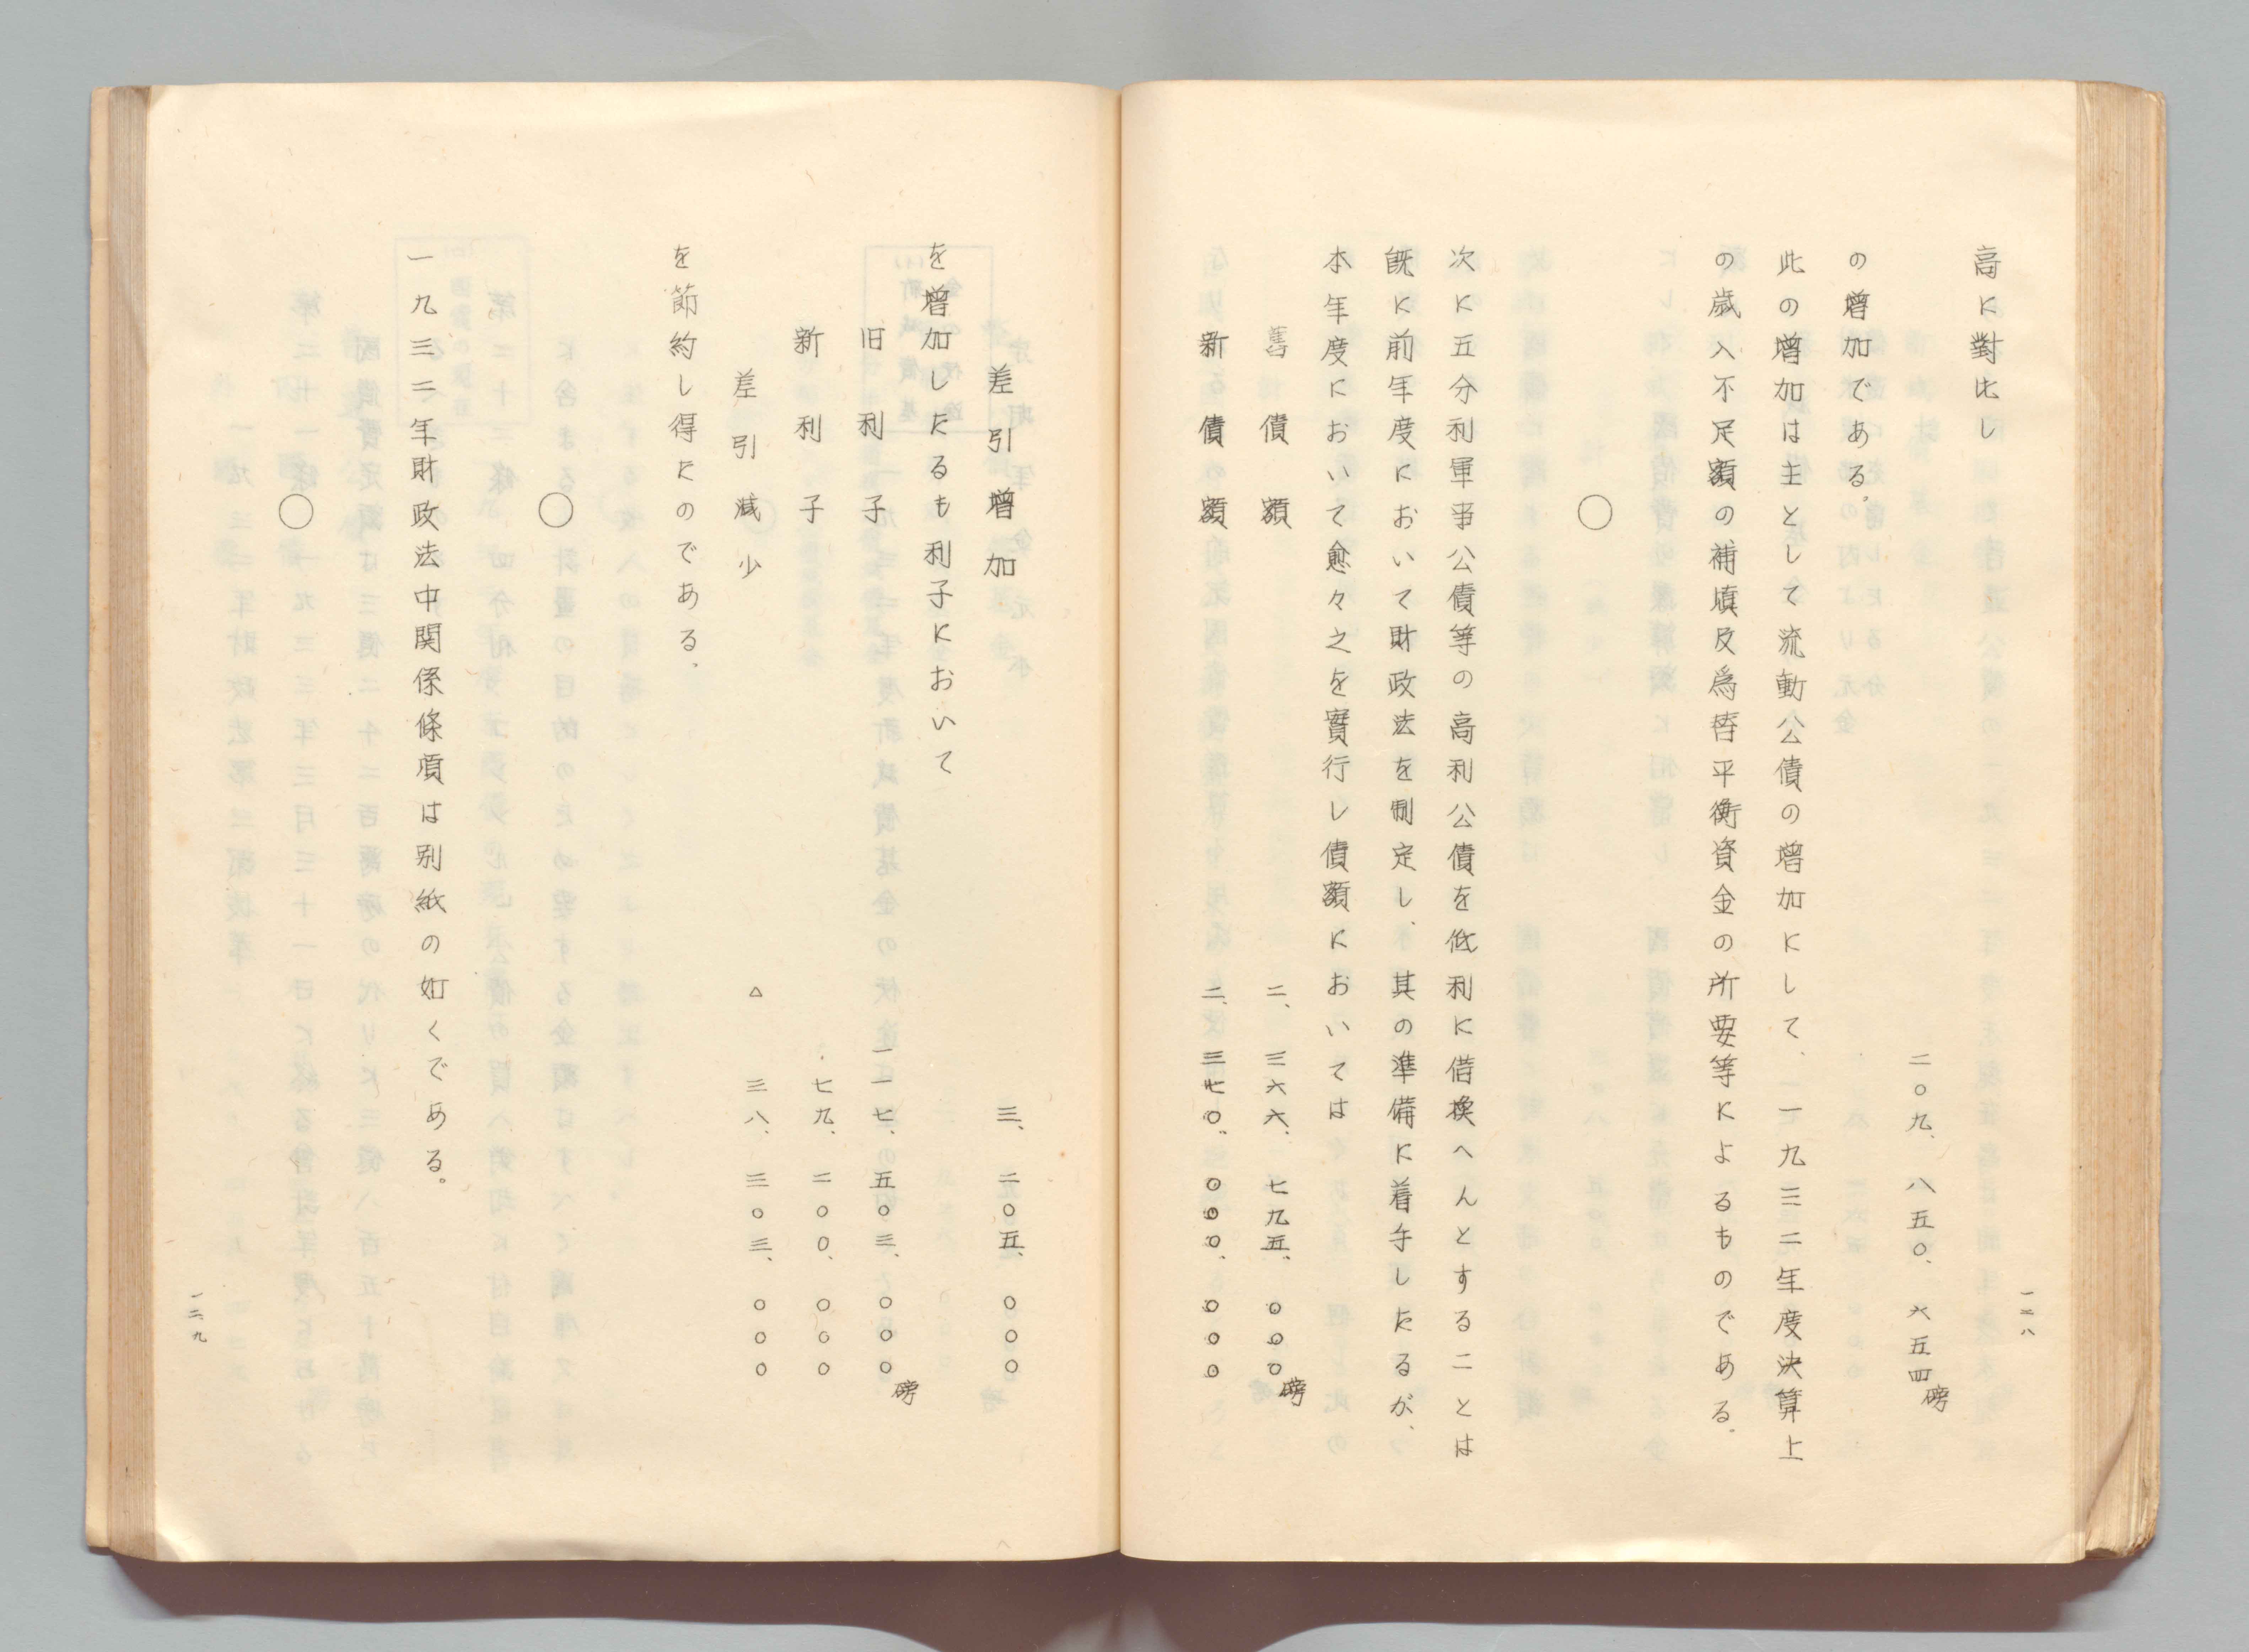 高に對比し
二〇九、八五〇、六五四磅
の増加である。
此の増加は主として流動公債の増加にして、一九三二年度決算上
の歳入不足額の補塡及爲替平衡資金の所要等によるものである。
〇
次に五分利軍事公債等の高利公債を低利に借換へんとすることは
既に前年度において財政法を制定し、其の準備に着手したるが、
本年度において愈々之を實行し債額においては
舊債額 二、三六六、七九五、〇〇〇磅
新債額 二、三七〇、〇〇〇、〇〇〇
一二八
差引増加 三、二〇五、〇〇〇
を増加したるも利子において
旧利子 一一七、五〇三、〇〇〇磅
新利子 七九、二〇〇、〇〇〇
差引減少 △ 三八、三〇三、〇〇〇
を節約し得たのである、
〇
一九三二年財政法中関係條項は別紙の如くである。
〇
一二九